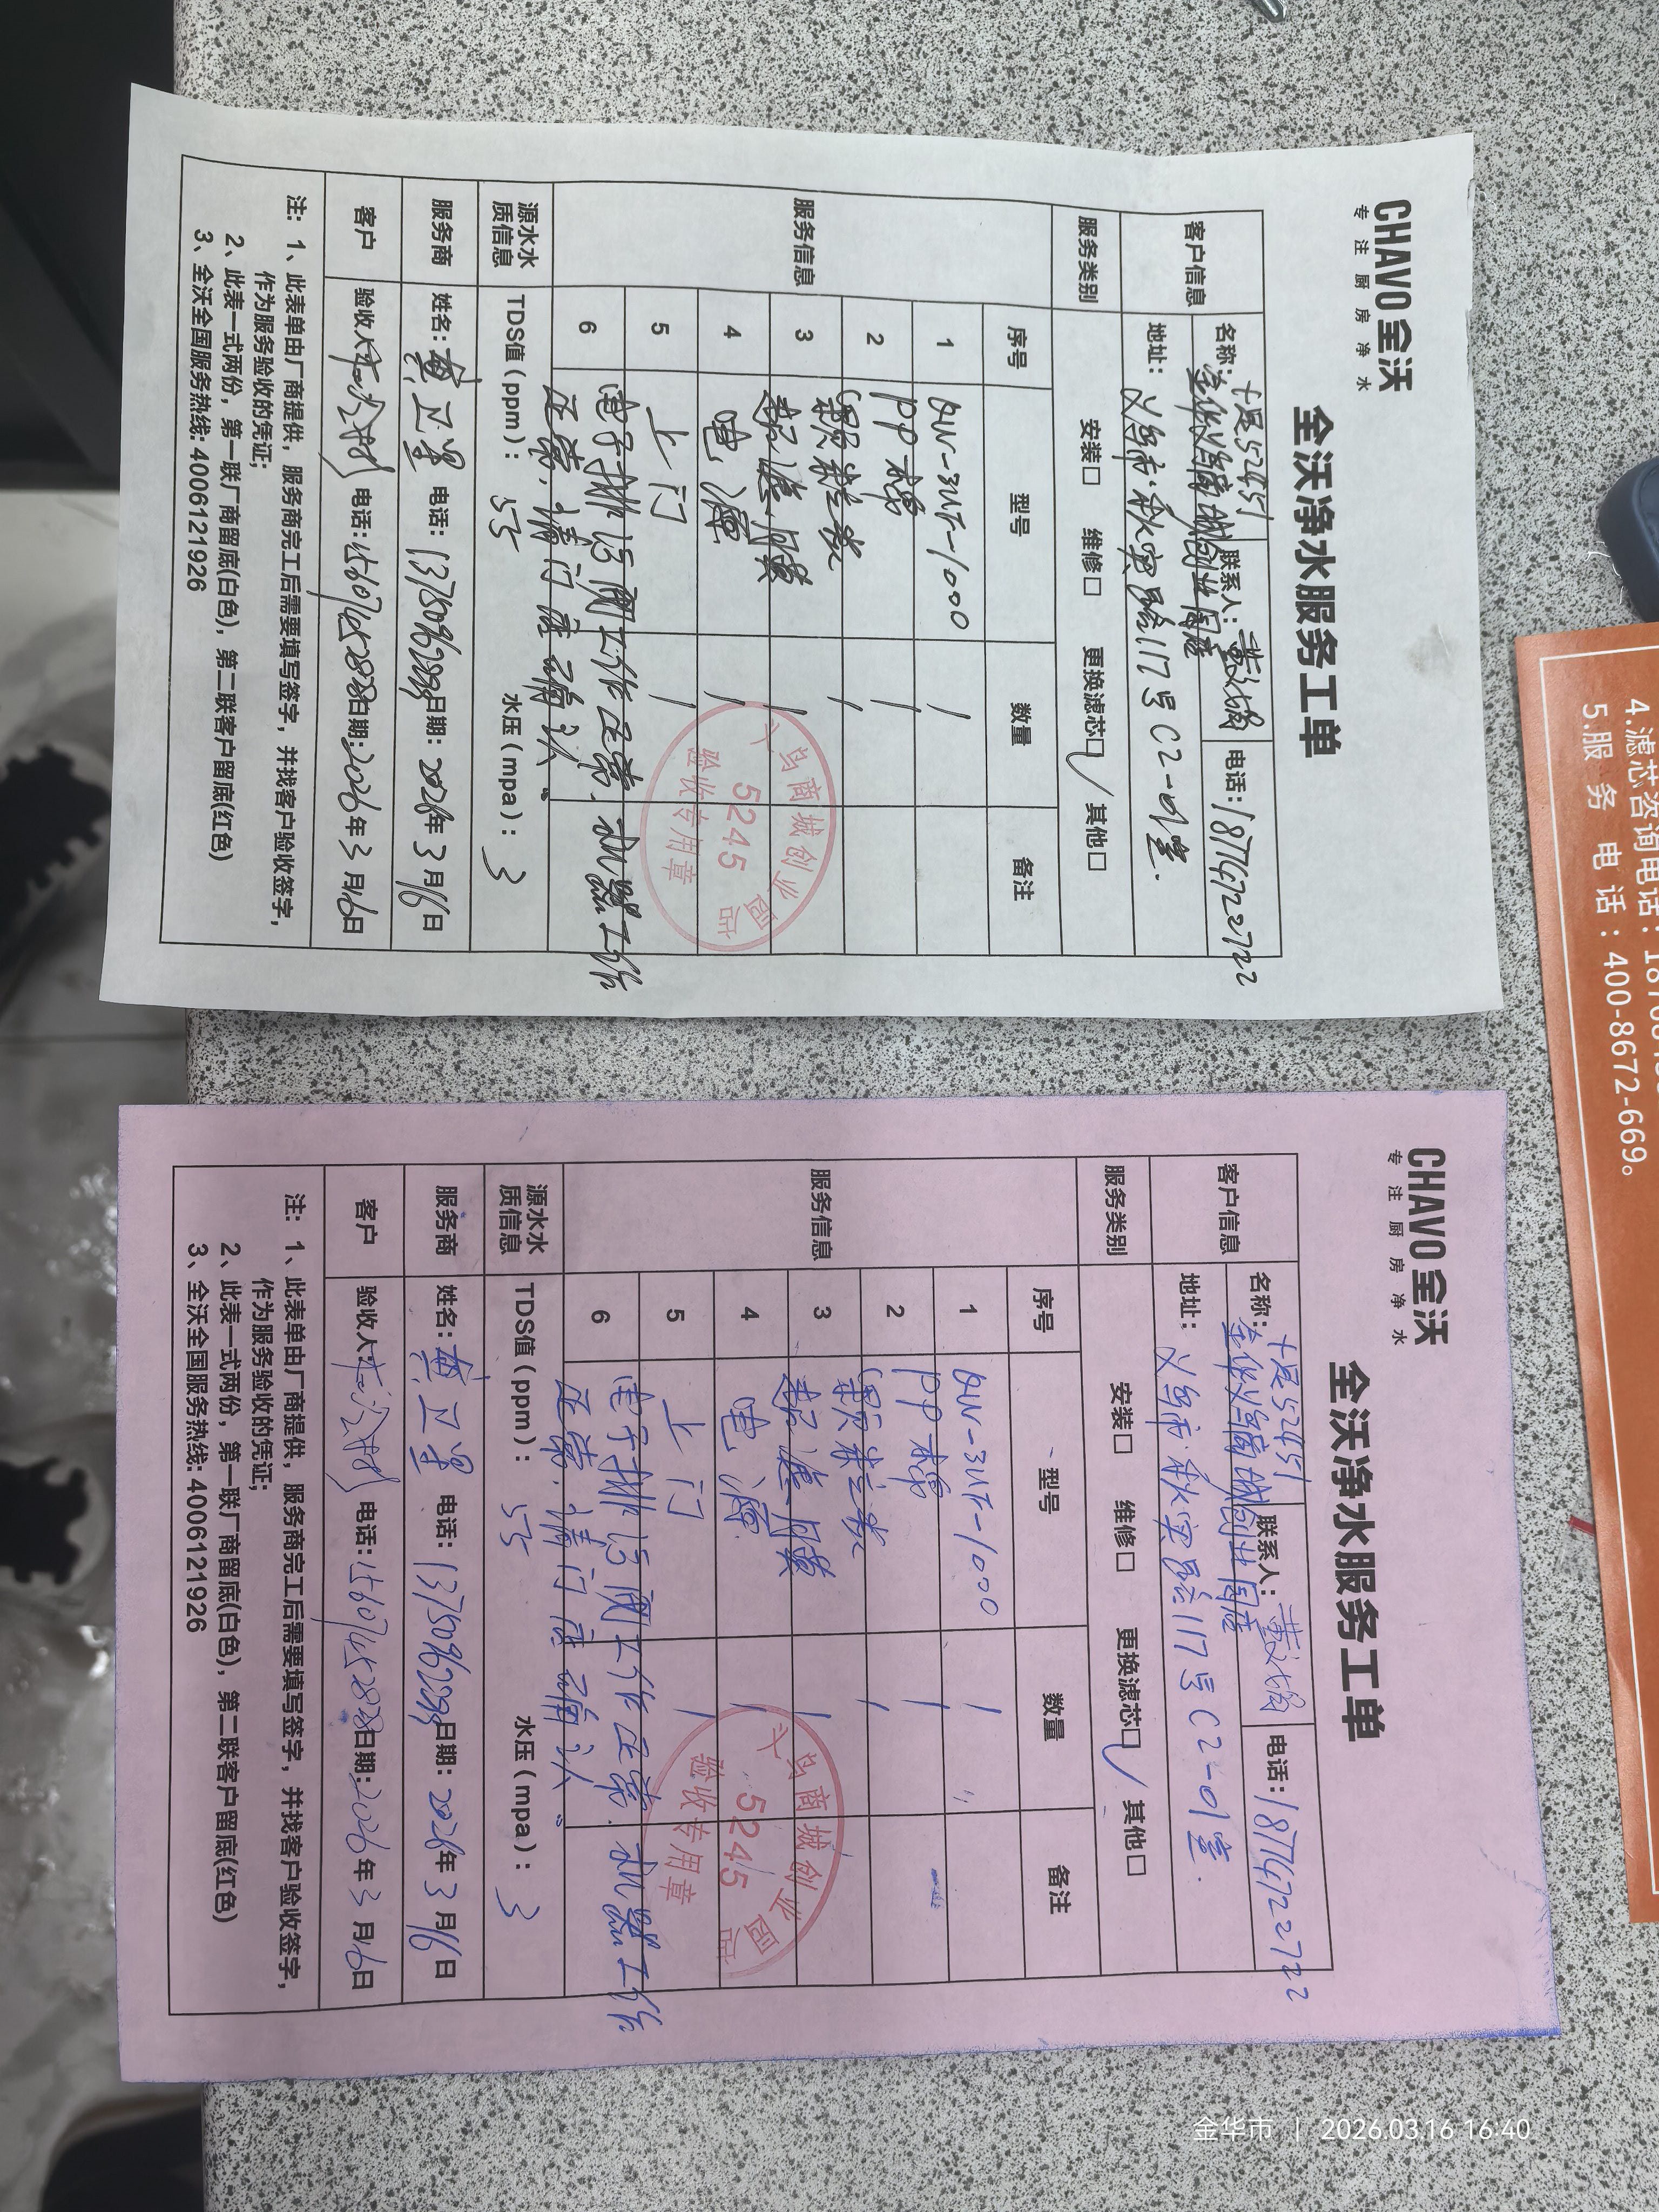 CHAVO 全沃
专注厨房净水
全沃净水服务工单
客户信息
名称: 十足5245
金华义乌商城创业园店
联系人: 电话: 18714722722
地址: 义乌市秋实路117号C2-01室.
服务类别 安装□ 维修□ 更换滤芯□✓ 其他□
服务信息 序号 型号 数量 备注
1 QW-3MT-1000 1
2 PP棉 1
颗粒炭 1
3 超滤膜 1
4 电源 1
5 上门 1
6 电子排污阀工作正常. 机器工作
正常,清门店确认。
源水水质信息 TDS值(ppm): 55 水压(mpa): 3
服务商 姓名: 黄卫星 电话: 13750962899 日期: 2026年3月16日
客户 验收人: 电话: 日期: 2026年3月16日
注: 1、此表单由厂商提供, 服务商完工后需要填写签字, 并找客户验收签字,
作为服务验收的凭证;
2、此表一式两份, 第一联厂商留底(白色), 第二联客户留底(红色)
3、全沃全国服务热线: 4006121926
义乌商城创业园店
5245
验收专用章
CHAVO 全沃
专注厨房净水
全沃净水服务工单
客户信息
名称: 十足5245
金华义乌商城创业园店
联系人: 电话: 18714722722
地址: 义乌市秋实路117号C2-01室.
服务类别 安装□ 维修□ 更换滤芯□✓ 其他□
服务信息 序号 型号 数量 备注
1 QW-3MT-1000 1
2 PP棉 1
颗粒炭 1
3 超滤膜 1
4 电源 1
5 上门 1
6 电子排污阀工作正常. 机器工作
正常,清门店确认。
源水水质信息 TDS值(ppm): 55 水压(mpa): 3
服务商 姓名: 黄卫星 电话: 13750962899 日期: 2026年3月16日
客户 验收人: 电话: 日期: 2026年3月16日
注: 1、此表单由厂商提供, 服务商完工后需要填写签字, 并找客户验收签字,
作为服务验收的凭证;
2、此表一式两份, 第一联厂商留底(白色), 第二联客户留底(红色)
3、全沃全国服务热线: 4006121926
义乌商城创业园店
5245
验收专用章
4.滤芯咨询电话:
5.服务电话: 400-8672-669。
金华市 | 2026.03.16 16:40